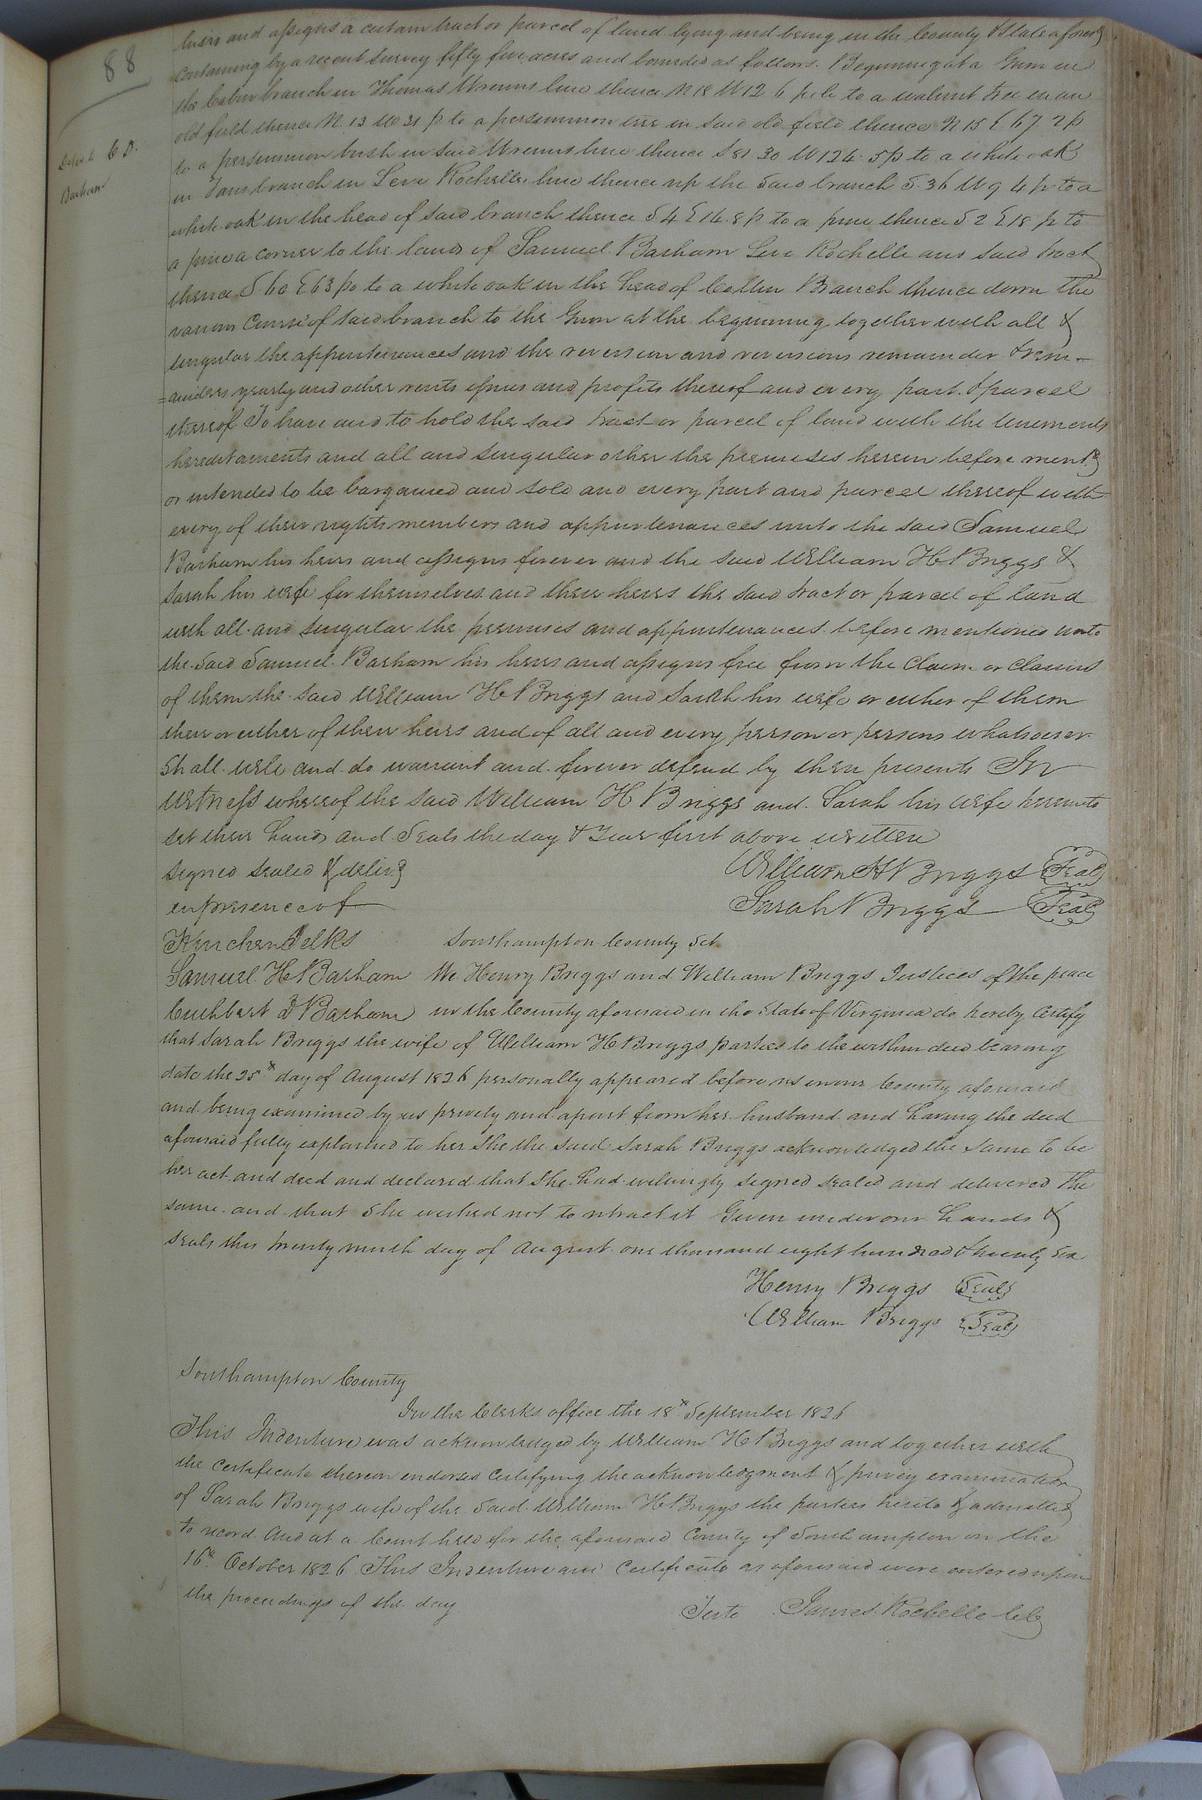 88
heirs and assigns a certain tract or parcel of land lying and being in the County & State aforesd
Containing by a recent survey fifty five acres and bounded as follows. Beginning at a Gum in
the Cabin branch in Thomas Wrenns line thence N 18 W 12 6 pole to a walnut tree in an
old field thence N. 13 W 31 p to a persimmon tree in said old field thence N 15 E 67 2 p
to a persimmon bush in said Wrenns line thence S 81 30 W 124. 5 p to a white oak
Deliv'd C D.
Barham
in branch in Levi Rochelles line thence up the said branch S. 36 W 9 4 p to a
white oak in the head of said branch thence S 4 E 14. 8 p to a pine thence S 2 E 18 p to
a pine a corner to the lands of Samuel Barham Levi Rochelle and said tract
thence S 60 E 63 po to a white oak in the head of Cabin Branch thence down the
various Course of said branch to the Gum at the beginning together with all &
singular the appurtenances and the reversion and reversions remainder & rem-
=ainders yearly and other rents issues and profits thereof and every part & parcel
thereof To have and to hold the said tract or parcel of land with the tenements
hereditaments and all and singular other the premises herein before mentd
or intended to be bargained and sold and every part and parcel thereof with
every of their rights members and appurtenances unto the said Samuel
Barham his heirs and assigns forever and the said William H Briggs &
Sarah his wife for themselves and their heirs the said tract or parcel of land
with all and singular the premises and appurtenances before mentioned unto
the said Samuel Barham his heirs and assigns free from the claim or claims
of them the said William H Briggs and Sarah his wife or either of them
their or either of their heirs and of all and every person or persons whatsoever
shall will and do warrant and forever defend by these presents In
Witness whereof the said William H Briggs and Sarah his wife hereunto
set their hands and Seals the day & Year first above written
Signed sealed & delivd
William H Briggs Seal
in presence of
Sarah Briggs Seal
Kinchen Jelks Southampton County Sct
Samuel H Barham We Henry Briggs and William Briggs Justices of the peace
Cuthbert D Barham in the County aforesaid in the State of Virginia do hereby Certify
that Sarah Briggs the wife of William H Briggs parties to the within deed bearing
date the 25th day of August 1826 personally appeared before us in our County aforesaid
and being examined by us privily and apart from her husband and having the deed
aforesaid fully explained to her She the said Sarah Briggs acknowledged the same to be
her act and deed and declared that She had willingly signed sealed and delivered the
same and that She wished not to retract it Given under our hands &
seals this twenty ninth day of August one thousand eight hundred & twenty six
Henry Briggs Seal
William Briggs Seal
Southampton County
In the Clerks office the 18th September 1826
This Indenture was acknowledged by William H Briggs and together with
the certificate thereon endorsed certifying the acknowledgment & privey examination
of Sarah Briggs wife of the said William H Briggs the parties hereto & admitted
to record And at a Court held for the aforesaid County of Southampton on the
16th October 1826 This Indenture and Certificate as aforesaid were entered upon
the proceedings of the day
Teste James Rochelle Clk